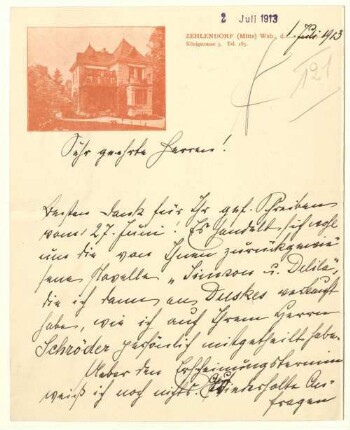 2 Juli 1913
ZEHLENDORF (Mitte) Wsb., d. 1. Juli 1913
Königstrasse 3. Tel. 185.
121
Sehr geehrte Herren!
Besten Dank für Ihr gef. Schreiben
vom 27. Juni! Es handelt sich wohl
um die von Ihnen zurückgewie-
sene Novelle „Simson u. Delila",
die ich dann an Duskes verkauft
habe, wie ich auch Ihrem Herrn
Schröder persönlich mitgetheilt habe.
Ueber den Erscheinungstermin
weiß ich noch nichts. Wiederholte An-
fragen